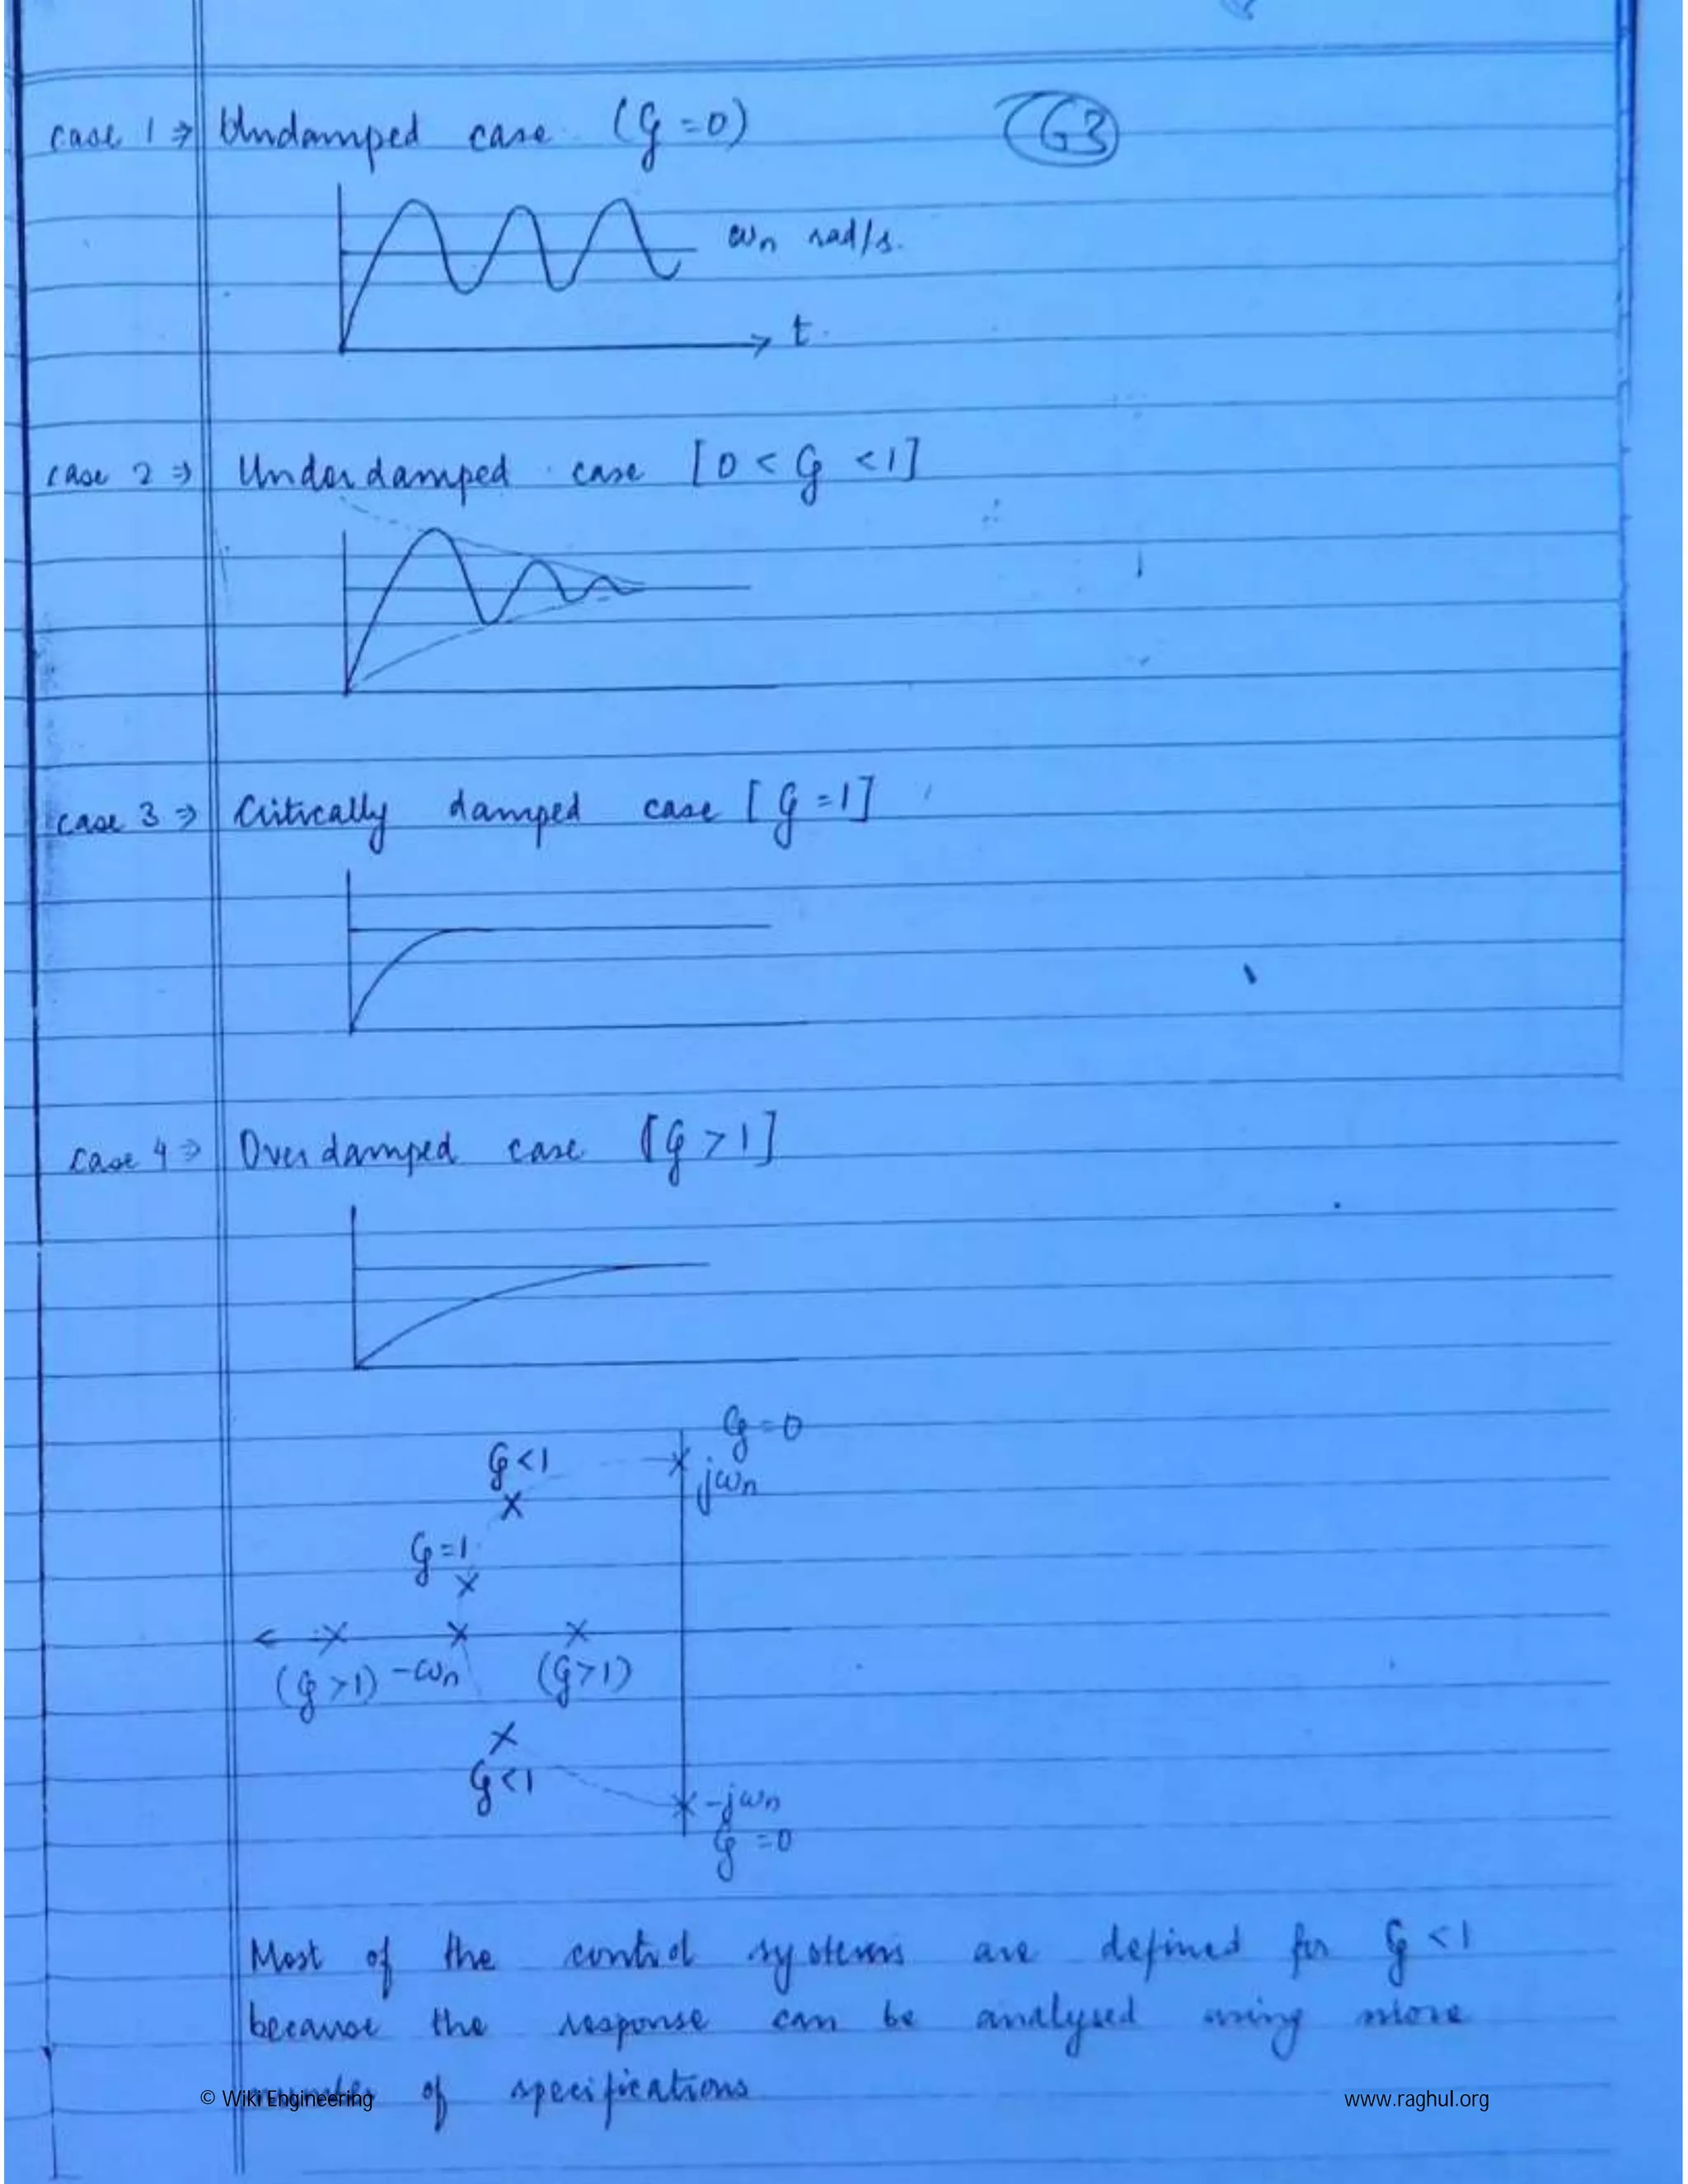 case 1 ⇒ Undamped case (ζ = 0)
63
ωn rad/s.
t
case 2 ⇒ Underdamped case [0 < ζ < 1]
case 3 ⇒ Critically damped case [ζ = 1]
case 4 ⇒ Overdamped case [ζ > 1]
ζ = 0
ζ < 1
jωn
ζ = 1
(ζ > 1) -ωn (ζ > 1)
ζ < 1
-jωn
ζ = 0
Most of the control systems are defined for ζ < 1
because the response can be analysed using more
number of specifications
© Wiki Engineering
www.raghul.org